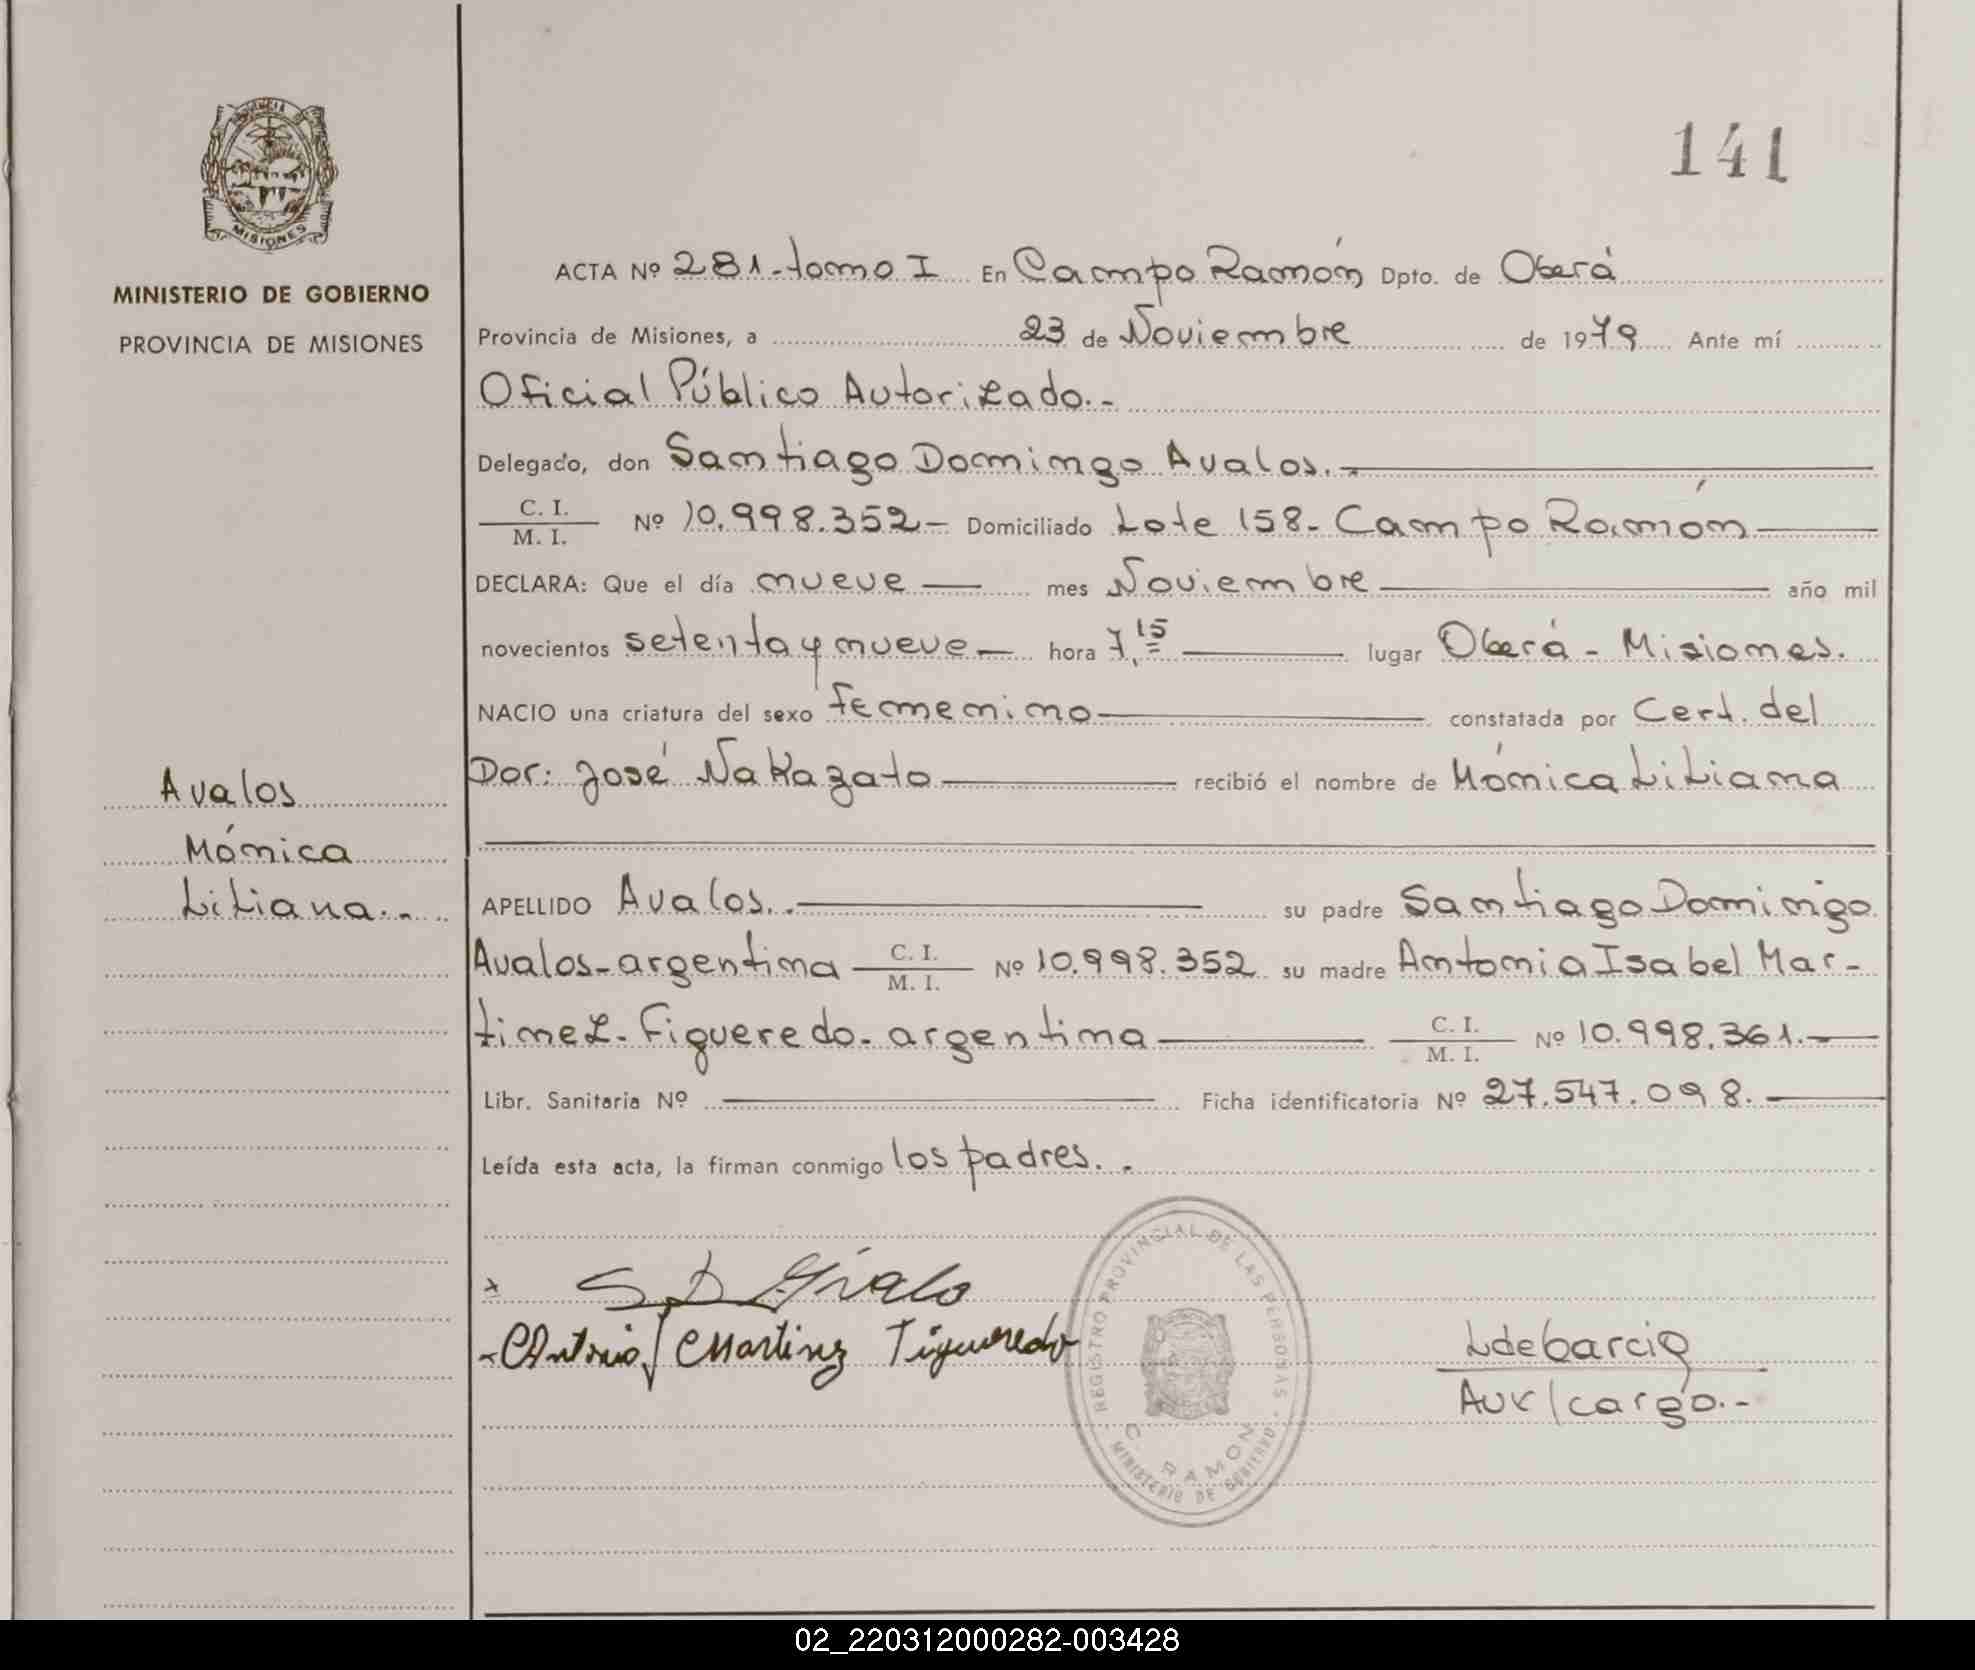 PROVINCIA DE
MISIONES
MINISTERIO DE GOBIERNO
PROVINCIA DE MISIONES
Avalos
Mónica
Liliana.-
141
ACTA Nº 281-tomo I En Campo Ramón Dpto. de Oberá
Provincia de Misiones, a 23 de Noviembre de 1979 Ante mí
Oficial Público Autorizado.-
Delegado, don Santiago Domingo Avalos.-
C. I. / M. I. Nº 10.998.352- Domiciliado Lote 158- Campo Ramón
DECLARA: Que el día nueve mes Noviembre año mil
novecientos setenta y nueve hora 7,15 lugar Oberá - Misiones.
NACIO una criatura del sexo femenino constatada por Cert. del
Dor: José Nakazato recibió el nombre de Mónica Liliana
APELLIDO Avalos.- su padre Santiago Domingo
Avalos-argentina C. I. / M. I. Nº 10.998.352 su madre Antonia Isabel Mar-
tinez-Figueredo-argentina C. I. / M. I. Nº 10.998.361.-
Libr. Sanitaria Nº Ficha identificatoria Nº 27.547.098.-
Leída esta acta, la firman conmigo los padres.-
x S D Avalo
Martinez Figueredo
REGISTRO PROVINCIAL DE LAS PERSONAS
C. RAMON
MINISTERIO DE GOBIERNO
Aux/cargo.-
02_220312000282-003428